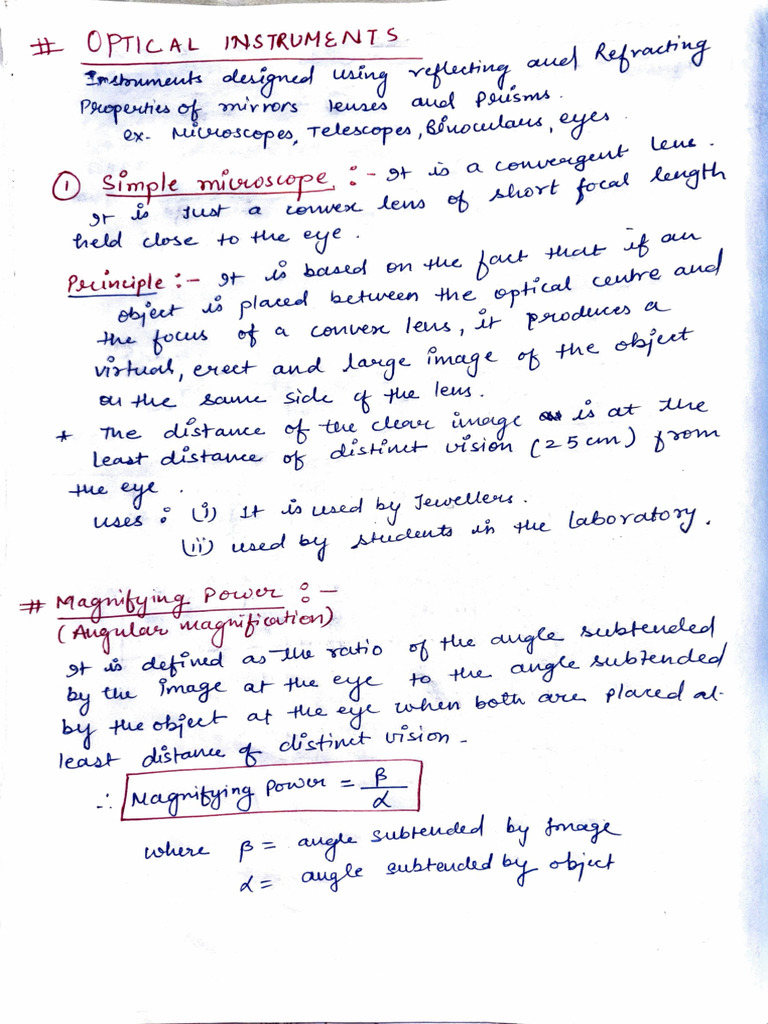 # OPTICAL INSTRUMENTS
Instruments designed using reflecting and Refracting
Properties of mirrors lenses and Prisms.
ex- Microscopes, Telescopes, Binoculars, eyes.
① Simple microscope :- It is a convergent lens.
It is Just a convex lens of short focal length
held close to the eye.
Principle :- It is based on the fact that if an
object is placed between the optical centre and
the focus of a convex lens, it produces a
virtual, erect and large image of the object
on the same side of the lens.
* The distance of the clear image is at the
least distance of distinct vision (25cm) from
the eye.
Uses : (i) It is used by Jewellers.
(ii) used by students in the laboratory.
# Magnifying Power :-
(Angular magnification)
It is defined as the ratio of the angle subtended
by the image at the eye to the angle subtended
by the object at the eye when both are placed at
least distance of distinct vision -
∴ Magnifying Power = β/α
where β = angle subtended by Image
α = angle subtended by object